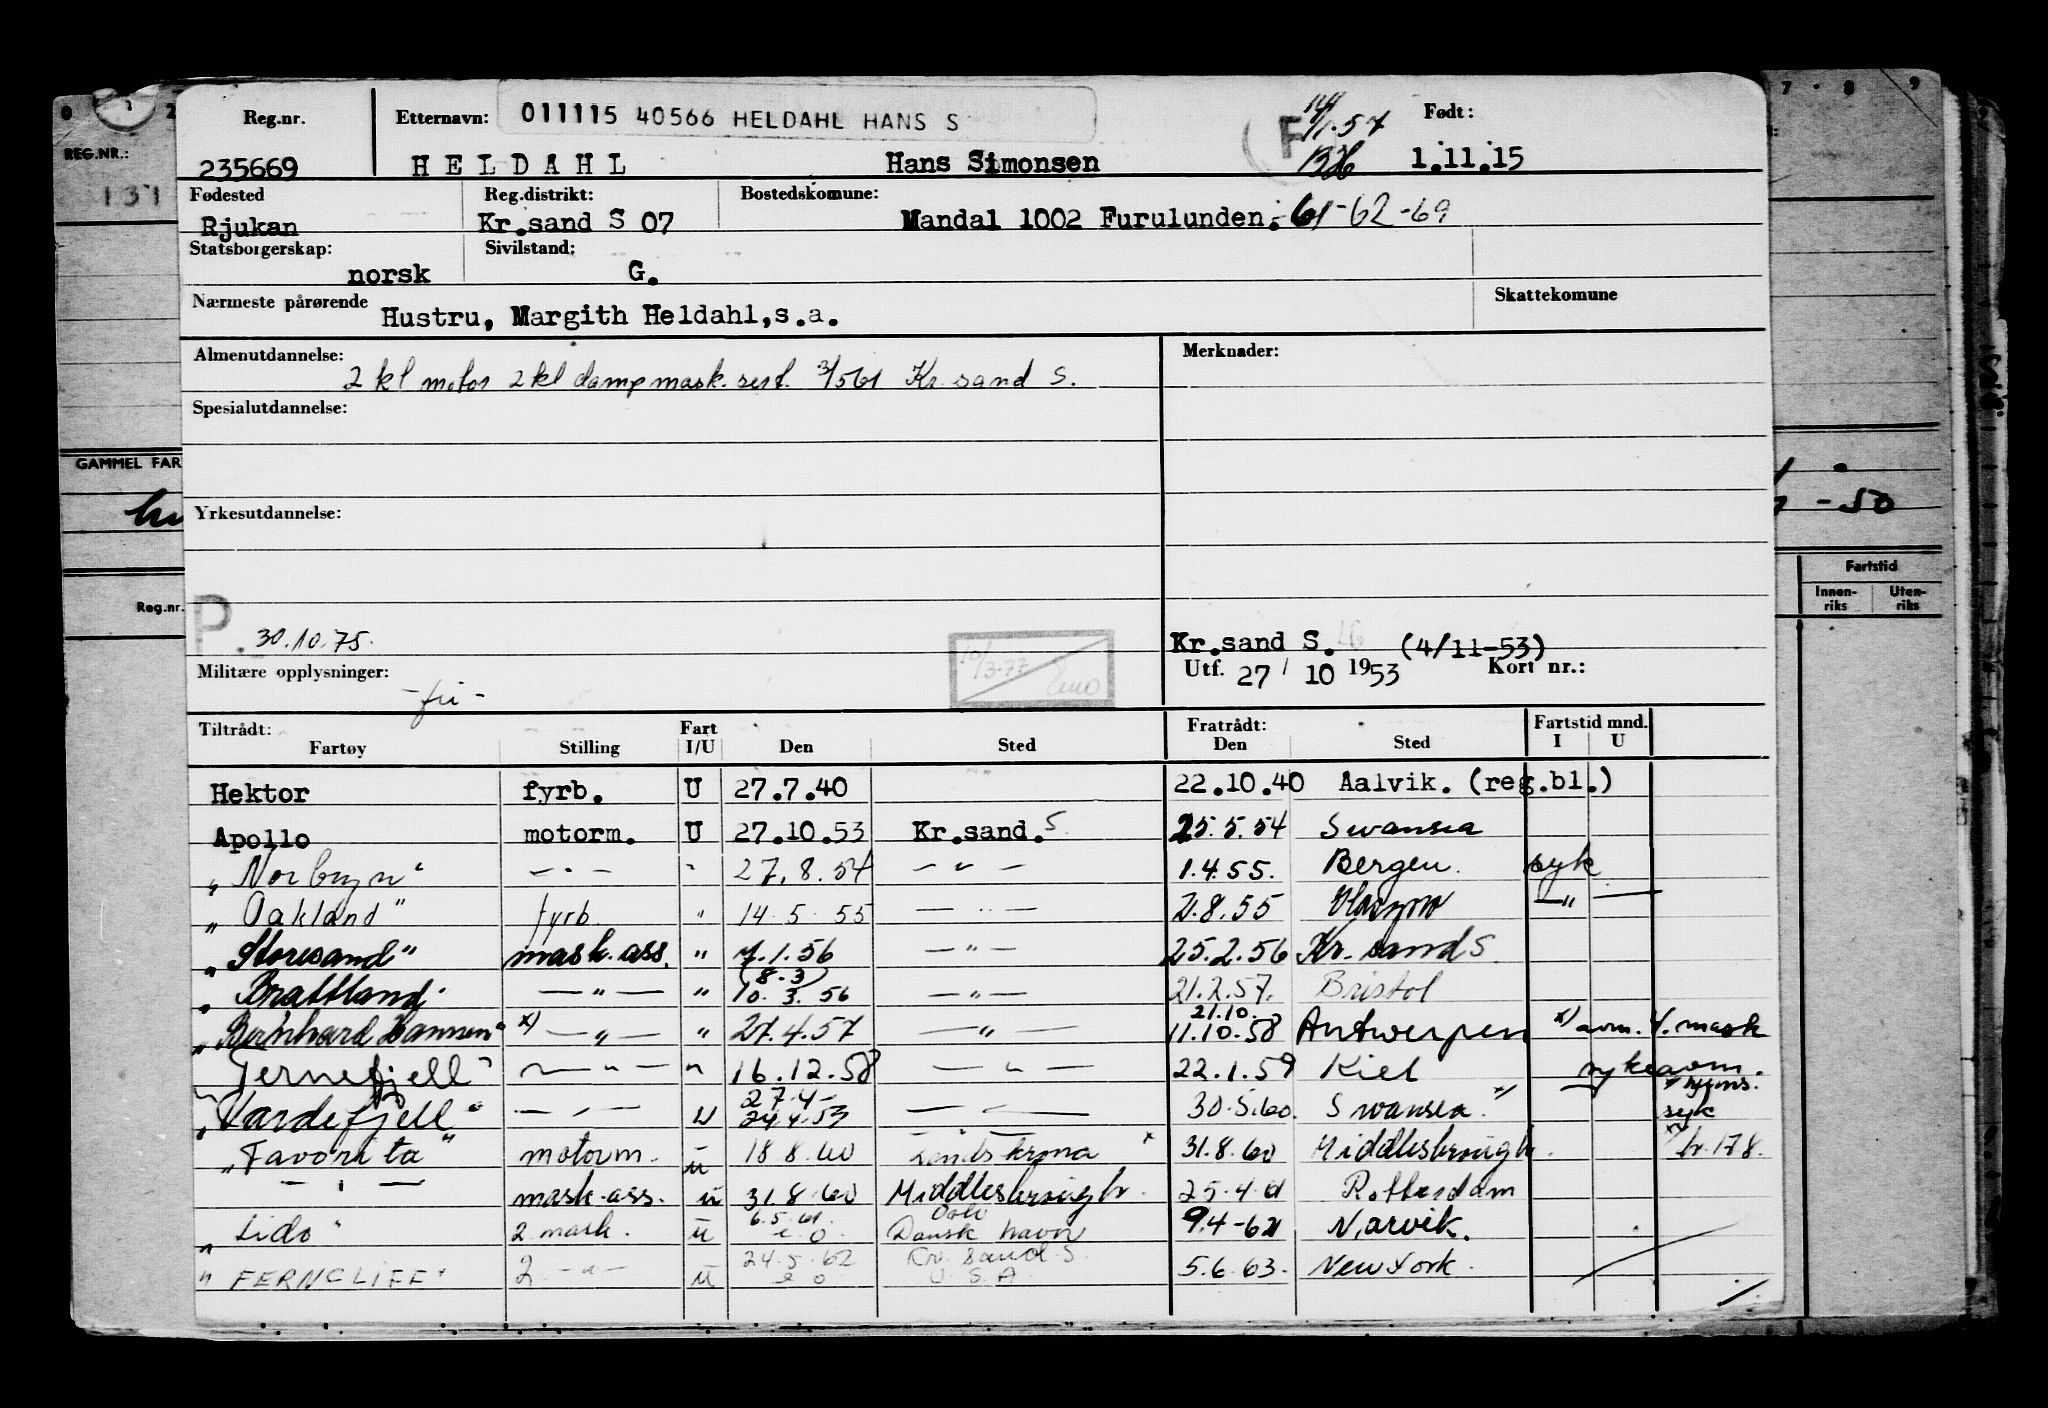 Reg.nr. Etternavn: 011115 40566 HELDAHL HANS S Født:
235669 HELDAHL Hans Simonsen 1.11.15
Fødested Reg.distrikt: Bostedskomune:
Rjukan Kr.sand S 07 Mandal 1002 Furulunden. 61-62-69
Statsborgerskap: Sivilstand:
norsk G.
Nærmeste pårørende Skattekomune
Hustru, Margith Heldahl,s.a.
Almenutdannelse: Merknader:
2 kl motor 2 kl dampmask. sert. 3/561 Kr. sand S.
Spesialutdannelse:
Yrkesutdannelse:
P. 30.10.75.
Kr.sand S. (4/11-53)
Militære opplysninger: Utf. 27/ 10 1953 Kort nr.:
-fri-
10/3-77
Tiltrådt: Fart Fratrådt: Fartstid mnd.
Fartøy Stilling I/U Den Sted Den Sted I U
Hektor fyrb. U 27.7.40 22.10.40 Aalvik. (reg.bl.)
Apollo motorm. U 27.10.53 Kr.sand.S 25.5.54 Swansea
"Norbryn" - " - " 27.8.54 - " - 1.4.55. Bergen. syk
"Oakland" fyrb " 14.5.55 - " - 2.8.55 Glasgow - " -
"Storesand" mask.ass. " 7.1.56 - " - 25.2.56 Kr.sand S.
(8.3)
"Brattland" - " - " 10.3.56 - " - 21.2.57. Bristol
21.10.
"Bernhard Hannen" x) - " - " 27.4.57 - " - 11.10.58 Antwerpen x) avm. 4. mask
"Ternefjell" - " - " 16.12.58 - " - 22.1.59 Kiel sykeavm.
27.4-
"Vardefjell" - " - U 24.4.59 - " - 30.5.60. Swansea. x) syk
"Favorita" motorm. u 18.8.60 Landskrona x 31.8.60 Middlesbrough. br. 178.
- " - mask-ass. u 31.8.60 Middlesbrough. 25.4.61 Rotterdam
6.5.61. Oslo
"Lido" 2 mask. u e.o. Dansk havn 9.4-62 Narvik.
24.5.62 Kr. Sand S.
"FERNCLIFF" 2 - " - u e o U.S.A. 5.6.63. New York.
REG.NR.:
131
GAMMEL FAR
Reg.nr.
7 8 9
-50
Fartstid
Innen-riks Uten-riks